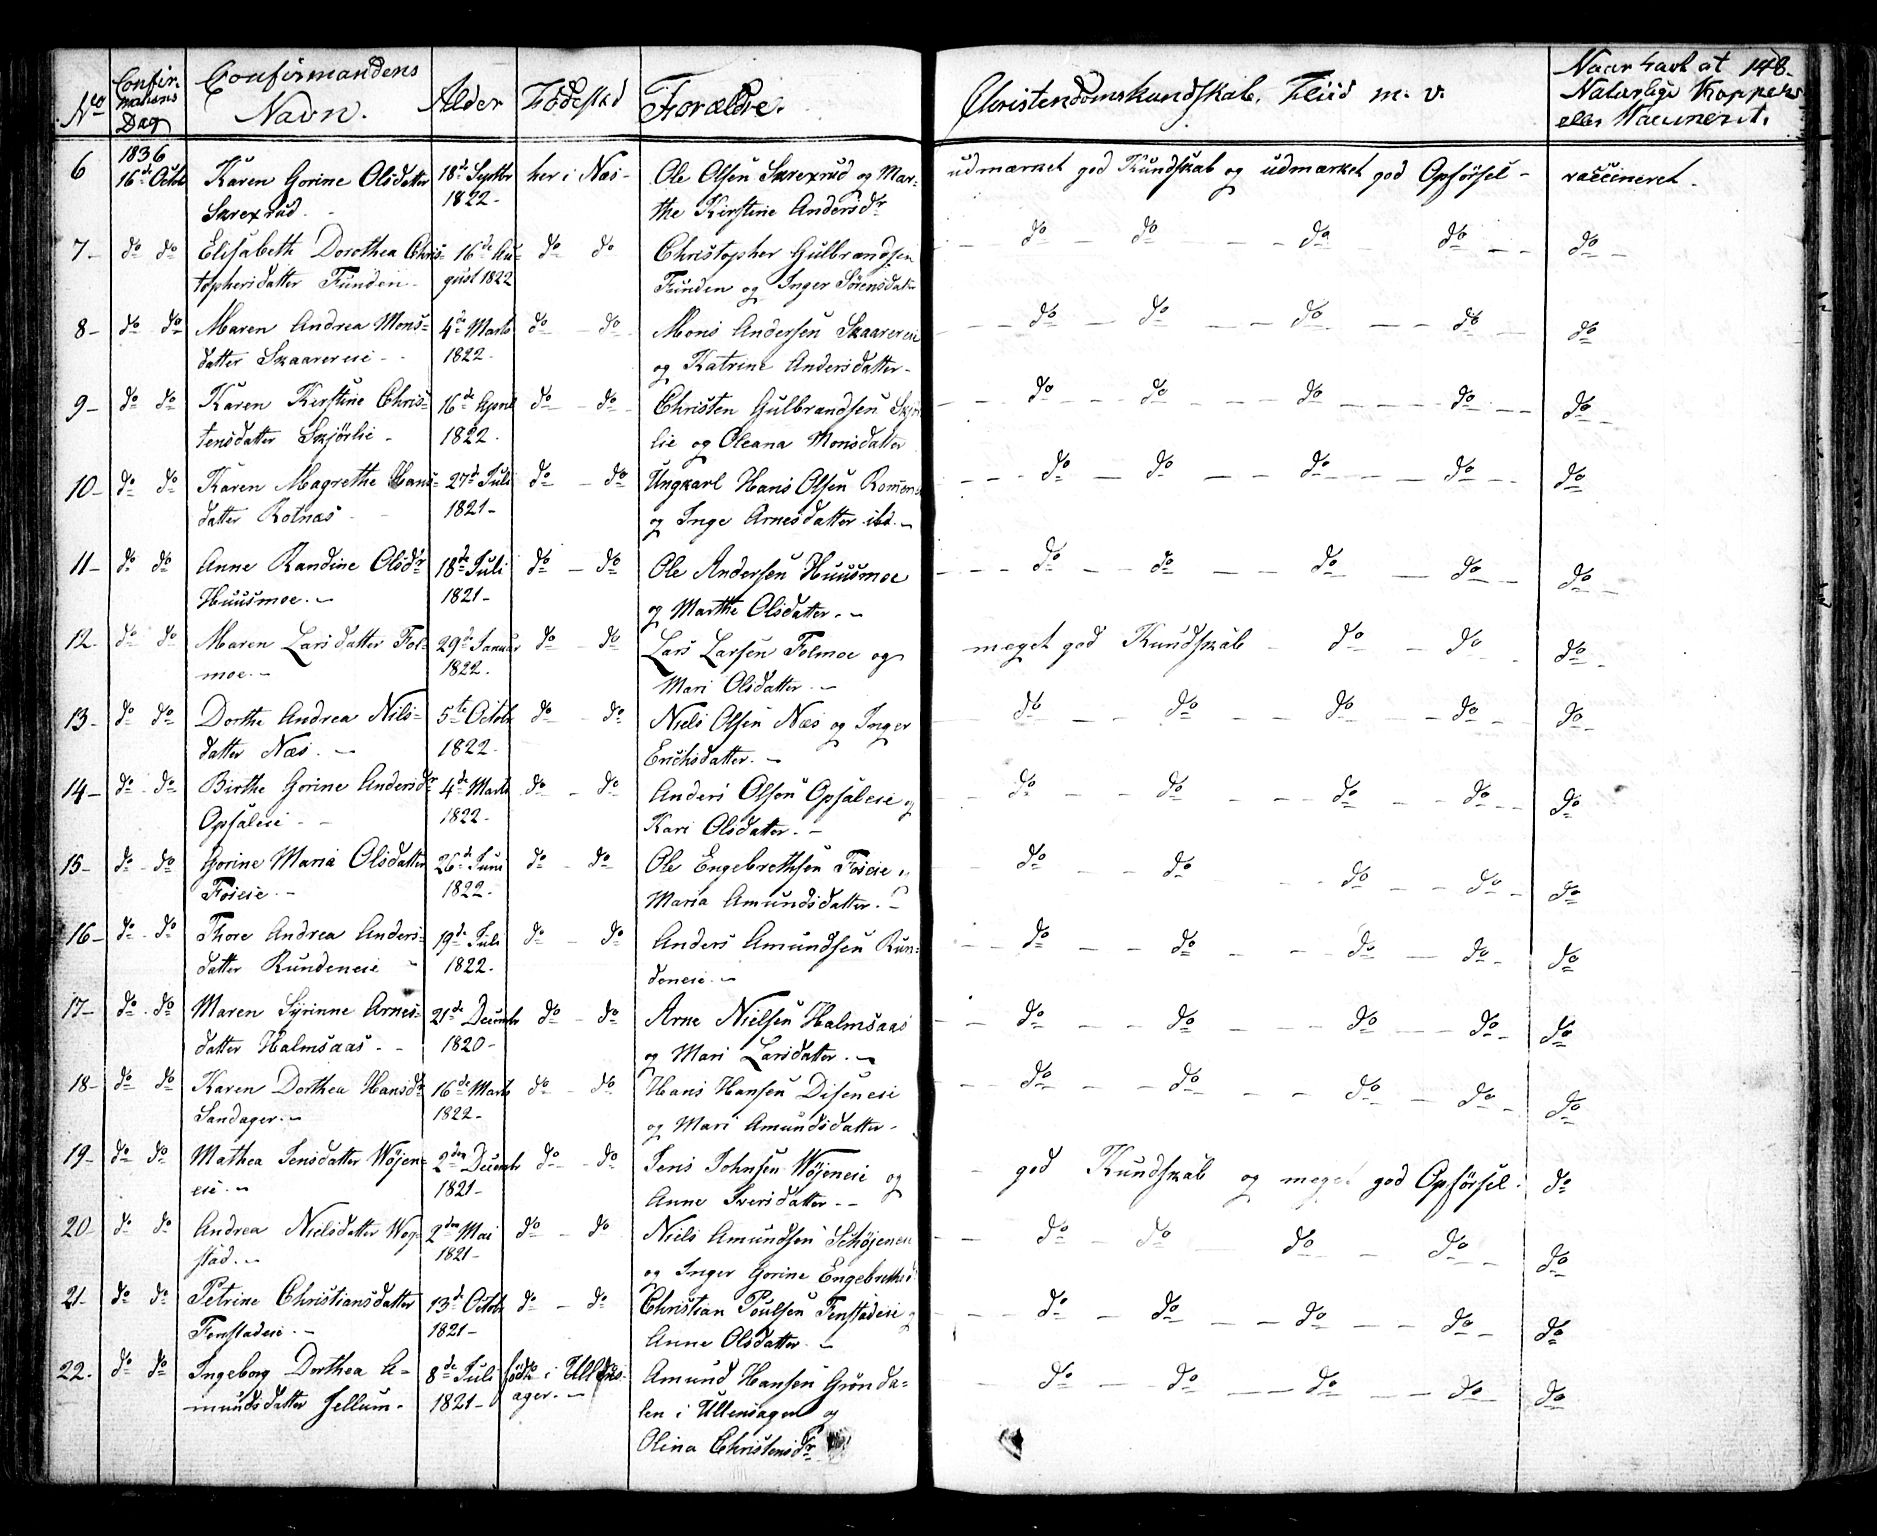 No
Confir-
mations
Dag
Confirmandens
Navn.
Alder
Fødested
Forældre.
Christendomskundskab, Fliid m. v.
Naar havt
148.
Naturlige Kopper
eller Vaccineret.
6 1836 16de Octob Karen Gorine Olsdatter 18de Septbr her i Næs- Ole Olsen Skrexrud og Mar- udmærket god Kundskab og udmærket god Opførsel - vaccineret.
Skrexrud 1822- the Kirstine Andersdr
7- do do Elisabeth Dorothea Chris- 16de Au- do do Christopher Gulbrandsen do do do do do
tophersdatter Funden- gust 1822 Funden og Inger Sørensdatter
8- do do Maren Andrea Mons- 4de Marts do do Mons Andersen Skaarereie do do do do do
datter Skaarereie- 1822- og Katrine Andersdatter-
9- do do Karen Kirstine Chris- 16de April do do Christen Gulbrandsen do do do do do
tensdatter Skjørlie- 1822. lie og Oleana Monsdatter
10- do do Karen Magrethe Hans- 27de Juli do do Ungkarl Hans Olsen do do do do do
datter Rotnæs 1821- og Inge Arnesdatter ibd.-
11- do do Anne Randine Olsdr 18de Juli do do Ole Andersen Huusmoe do do do do do
Huusmoe.- 1821- og Marthe Olsdatter.-
12. do do Maren Larsdatter Fol- 29de Januar do do Lars Larsen Folmoe og meget god Kundskab - do do do
moe.- 1822. Mari Olsdatter.-
13- do do Dorthe Andrea Nils- 5te Octobr do do Niels Olsen Næs og Inger do do do do do
datter Næs.- 1822- Erichsdatter.-
14- do do Birthe Gorine Andersdr 4de Marts do do Anders Olsen Opsaleie og do do do do do
Opsaleie- 1822- Kari Olsdatter.-
15- do do Gorine Maria Olsdatter 26de Juni do do Ole Engebrethsen Foseie do do do do do
Foseie- 1822- Maria Amundsdatter.-
16- do do Thore Andrea Anders- 19de Juli do do Anders Amundsen Run- do do do do do
datter Rundeneie 1822- deneie.-
17- do do Maren Syrinne Arnes- 21de Decembr do do Arne Nielsen Halmsaas do do do do do
datter Halmsaas.- 1820- og Mari Larsdatter.-
18- do do Karen Dorthea Hansdr 16de Marts do do Hans Hansen Diseneie do do do do do
Sandager.- 1822- og Mari Amundsdatter-
19- do do Mathea Jensdatter Wøjen- 2den Decembr do do Jens Johnsen Wøjeneie og god Kundskab og meget god Opførsel. do
eie.- 1821- Anne Iversdatter.-
20- do do Andrea Nielsdatter 2den Mai do do Niels Amundsen Schøjenei do do do do do
stad.- 1821- og Inger Gorine Engebrethsd
21- do do Petrine Christiansdatter 13de Octob do do Christian Poulsen Fenstadeie og do do do do do
Fenstadeie.- 1821- Anne Olsdatter.-
22. do do Ingeborg Dorthea A- 8de Juli født i Ullens- Amund Hansen Grønda- do do do do do
mundsdatter Jellum- 1821- ager.- len i Ullensager og
Olina Christensdr